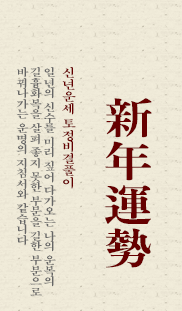 新年運勢
신년운세 토정비결풀이
일년의 신수를 미리 짚어 다가오는 나의 운복의
길흉화복을 살펴 좋지 못한 부분을 길한 부분으로
바꿔나가는 운명의 지침서와 같습니다